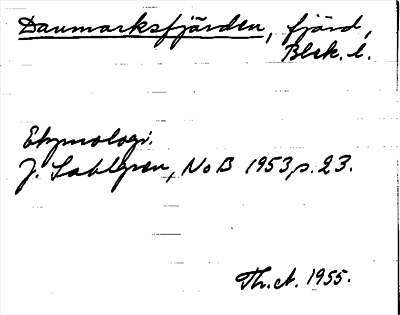 Danmarksfjärden, fjärd,
Blek. l.
Etymologi.
J. Sahlgren, NoB 1953, s. 23.
Th. A. 1955.